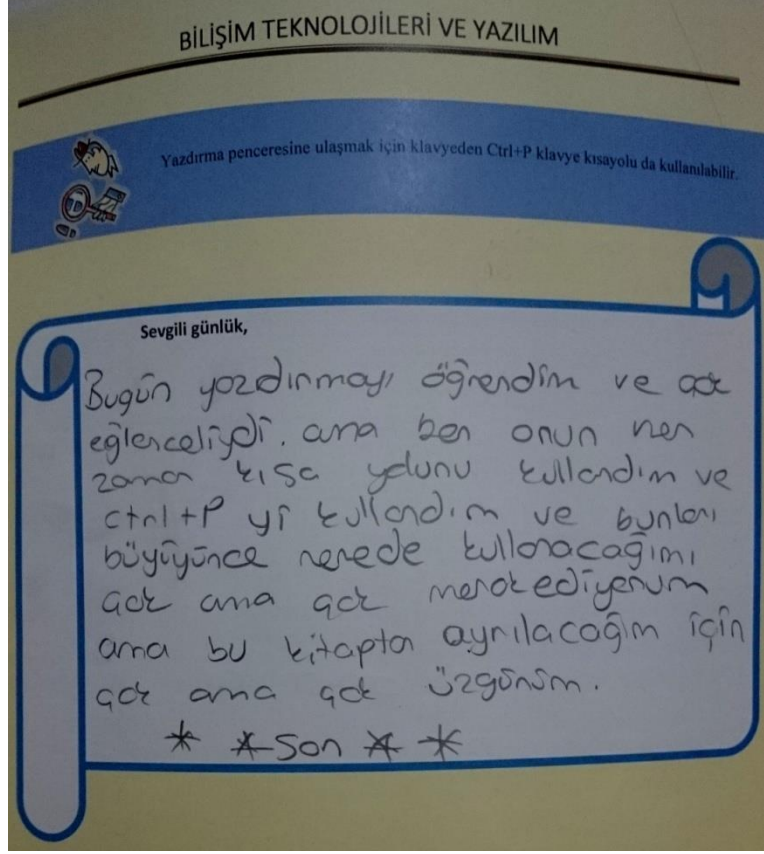 BİLİŞİM TEKNOLOJİLERİ VE YAZILIM
Yazdırma penceresine ulaşmak için klavyeden Ctrl+P klavye kısayolu da kullanılabilir.
Sevgili günlük,
Bugün yazdırmayı öğrendim ve çok
eğlenceliydi. ama ben onun her
zaman kısa yolunu kullandım ve
ctrl+P yi kullandım ve bunları
büyüyünce nerede kullanacağımı
çok ama çok merak ediyorum
ama bu kitaptan ayrılacağım için
çok ama çok üzgünüm.
* * Son * *